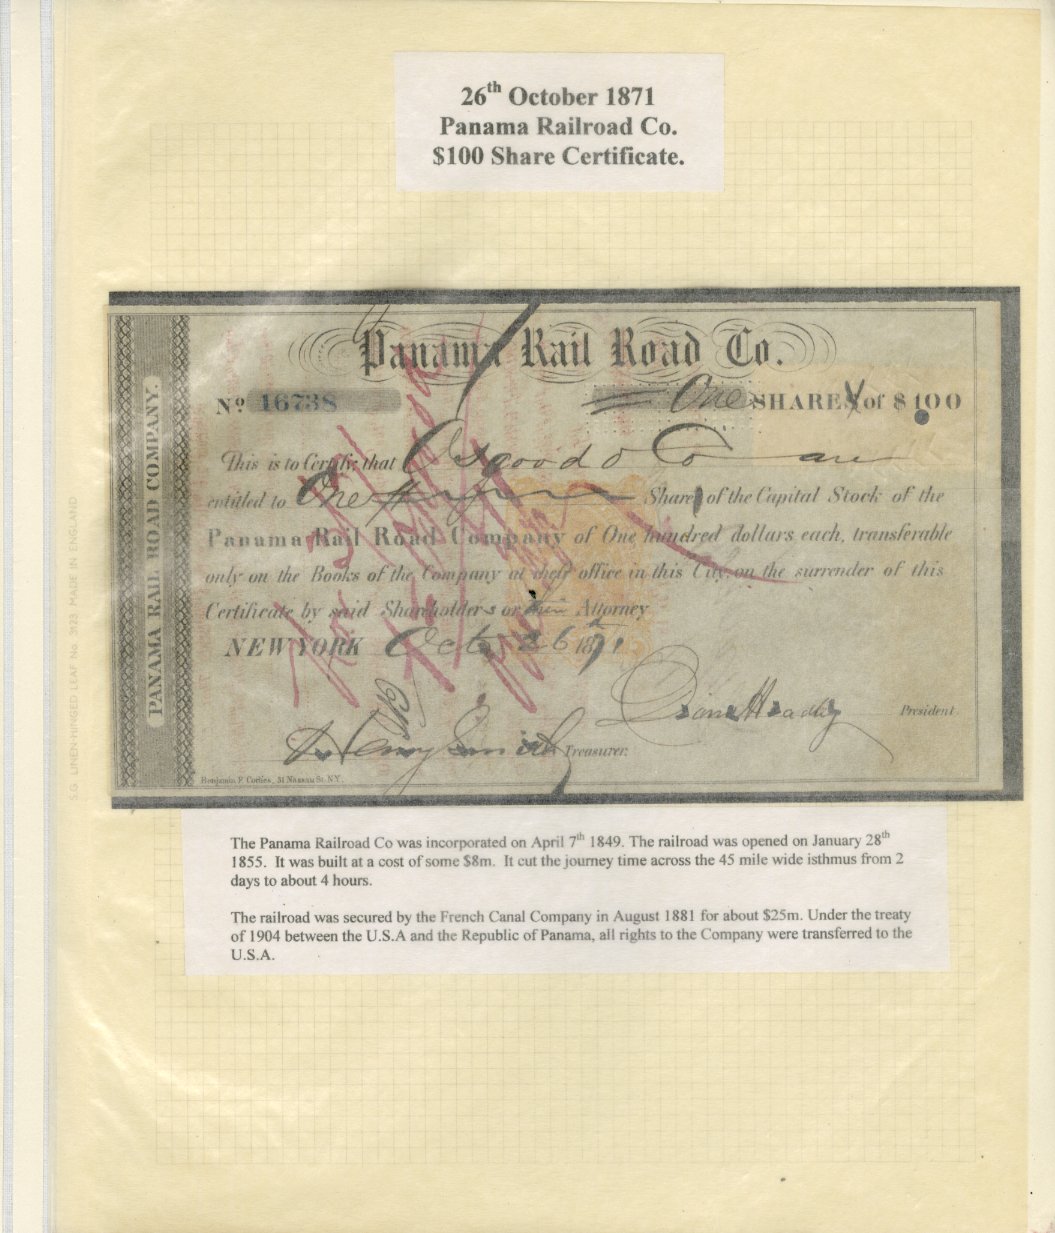 26th October 1871
Panama Railroad Co.
$100 Share Certificate.
Panama Rail Road Co.
No 16738
One SHARES of $100
This is to Certify that Osgood & Co are
entitled to One Share of the Capital Stock of the
Panama Rail Road Company of One hundred dollars each, transferable
only on the Books of the Company at their office in this City, on the surrender of this
Certificate by said Shareholders or their Attorney
NEW YORK Oct 26th 1871
President
Henry Smith Treasurer.
Benjamin F. Corlies, 31 Nassau St. N.Y.
PANAMA RAIL ROAD COMPANY.
S.G. LINEN-HINGED LEAF No 3923 MADE IN ENGLAND
The Panama Railroad Co was incorporated on April 7th 1849. The railroad was opened on January 28th
1855. It was built at a cost of some $8m. It cut the journey time across the 45 mile wide isthmus from 2
days to about 4 hours.
The railroad was secured by the French Canal Company in August 1881 for about $25m. Under the treaty
of 1904 between the U.S.A and the Republic of Panama, all rights to the Company were transferred to the
U.S.A.